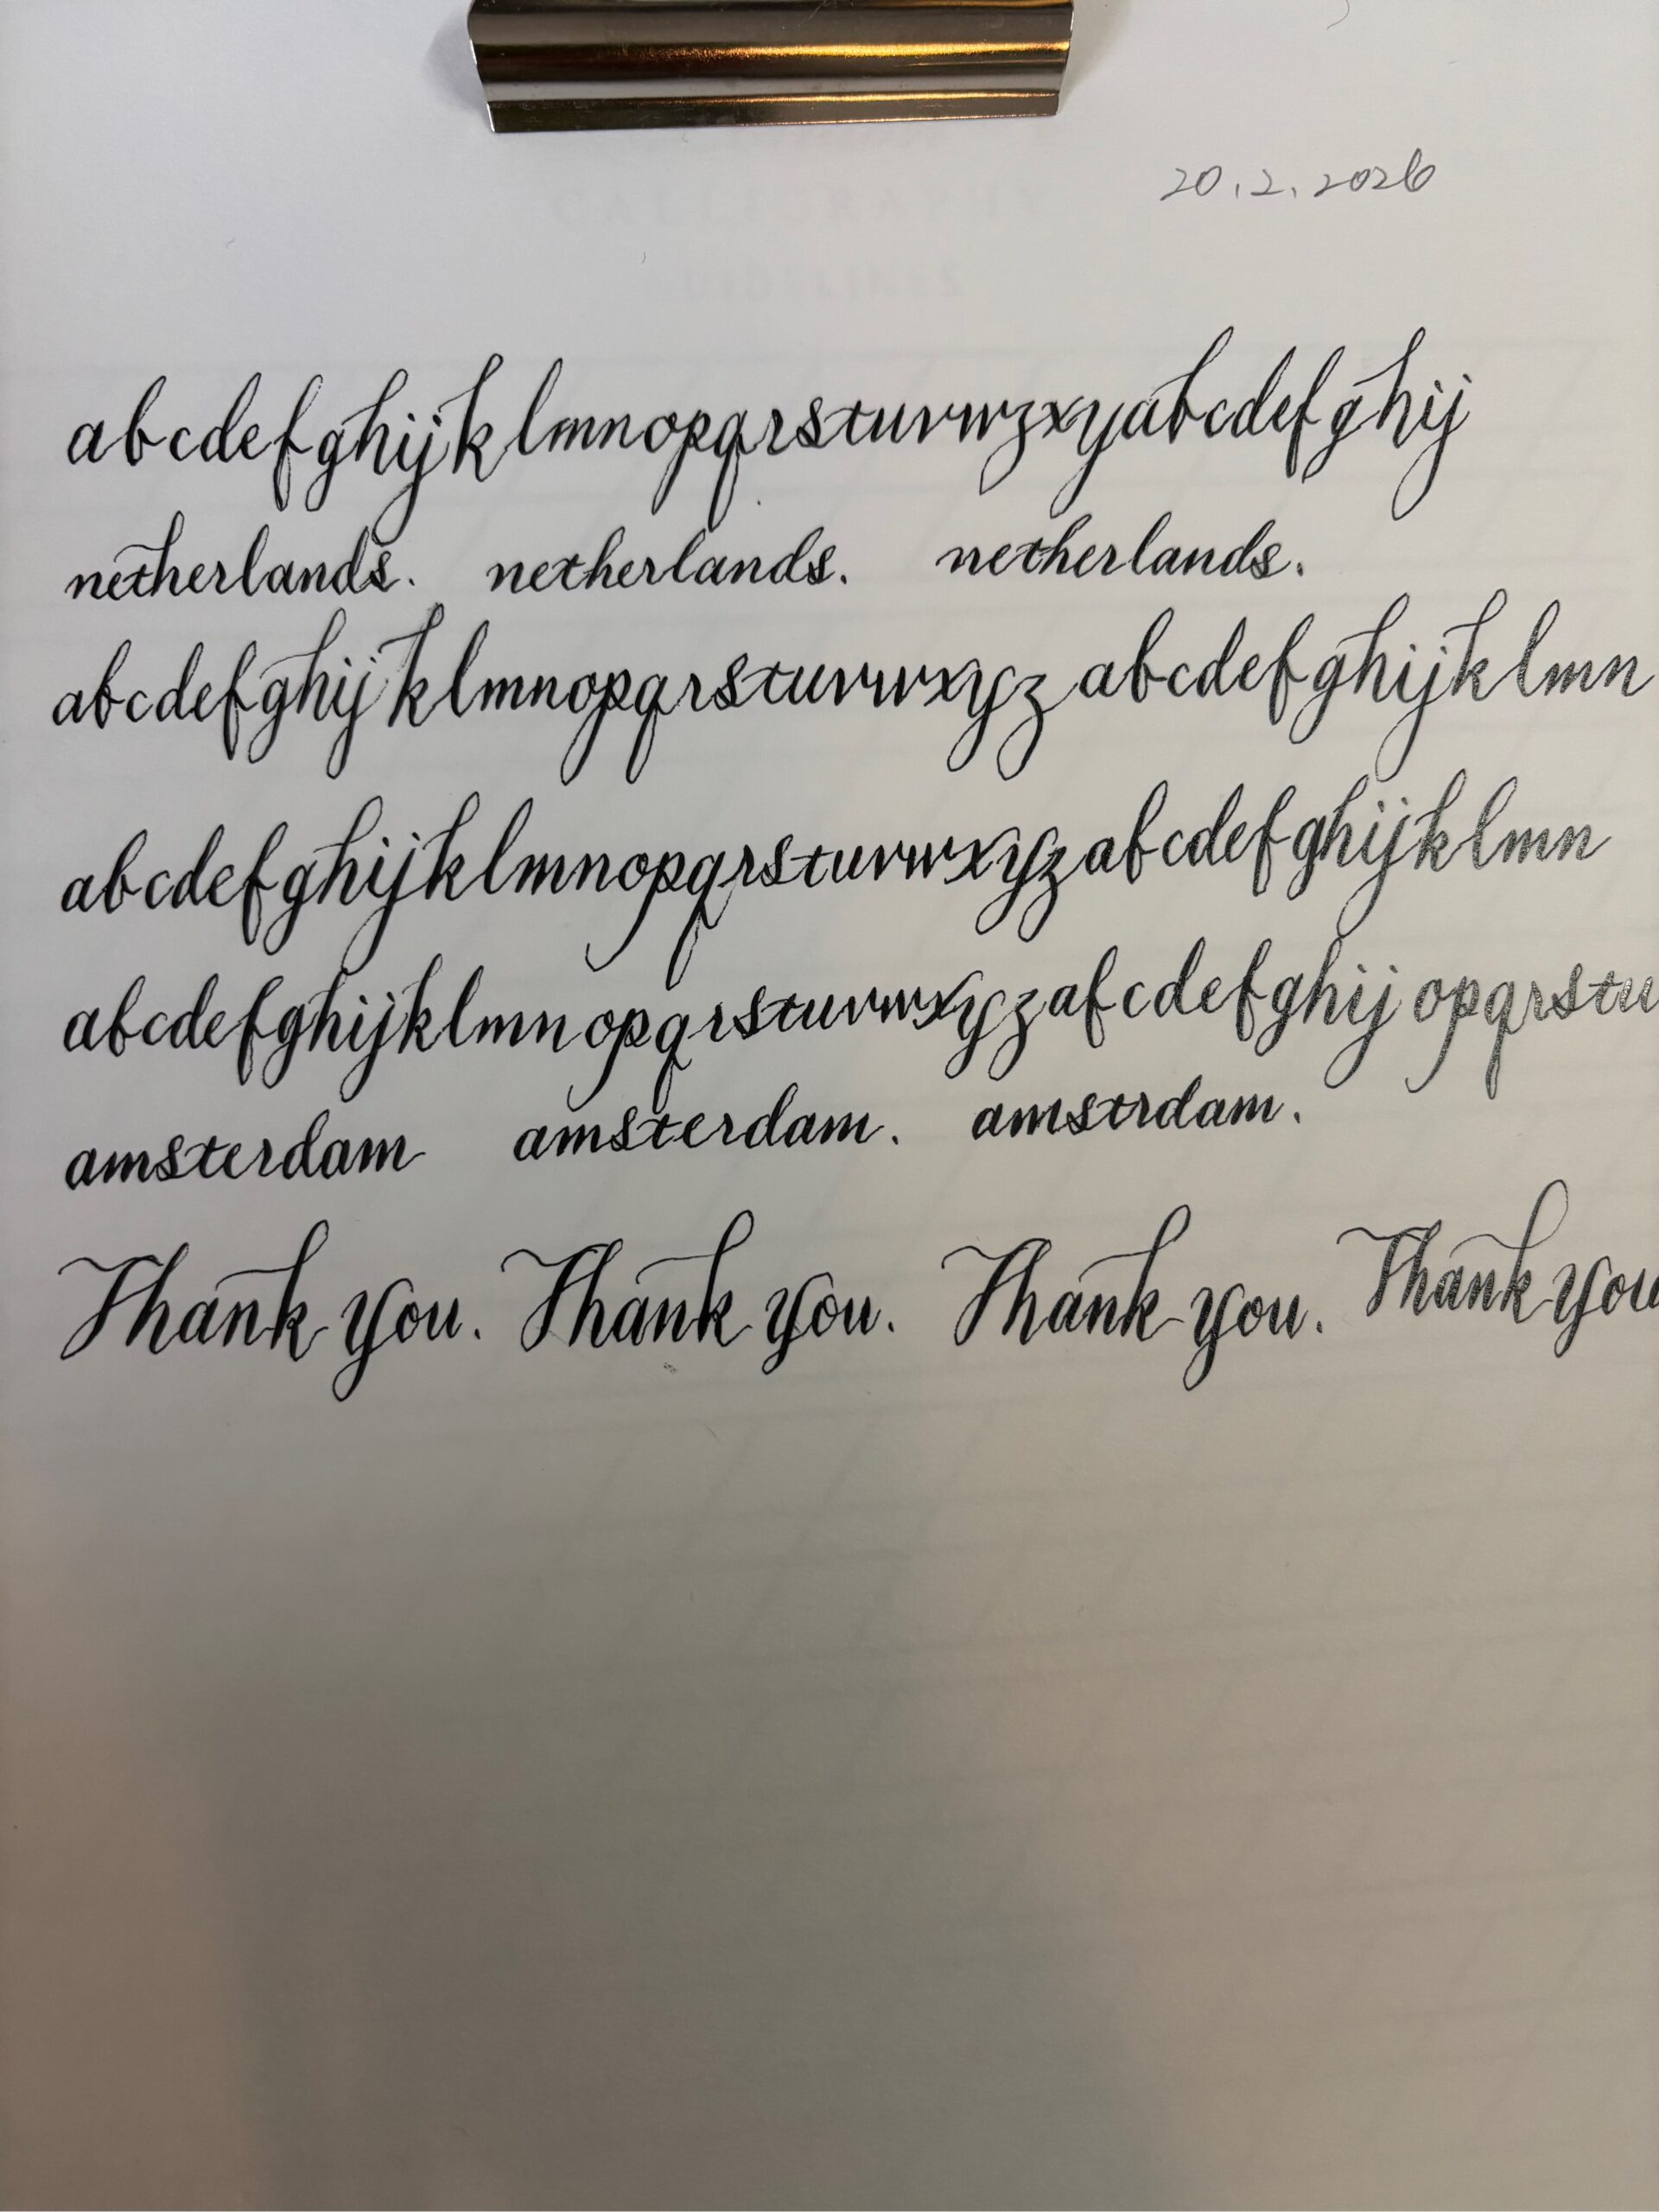 20.2.2026
CALLIGRAPHY
GUIDELINES
abcdefghijklmnopqrsturwzxyabcdefghij
netherlands. netherlands. netherlands.
abcdefghijklmnopqrstuvwxyz abcdefghijklmn
abcdefghijklmnopqrstuvwxyzabcdefghijklmn
abcdefghijklmnopqrstuvwxyzabcdefghij opqrstu
amsterdam amsterdam. amstrdam.
Thank you. Thank you. Thank you. Thank you